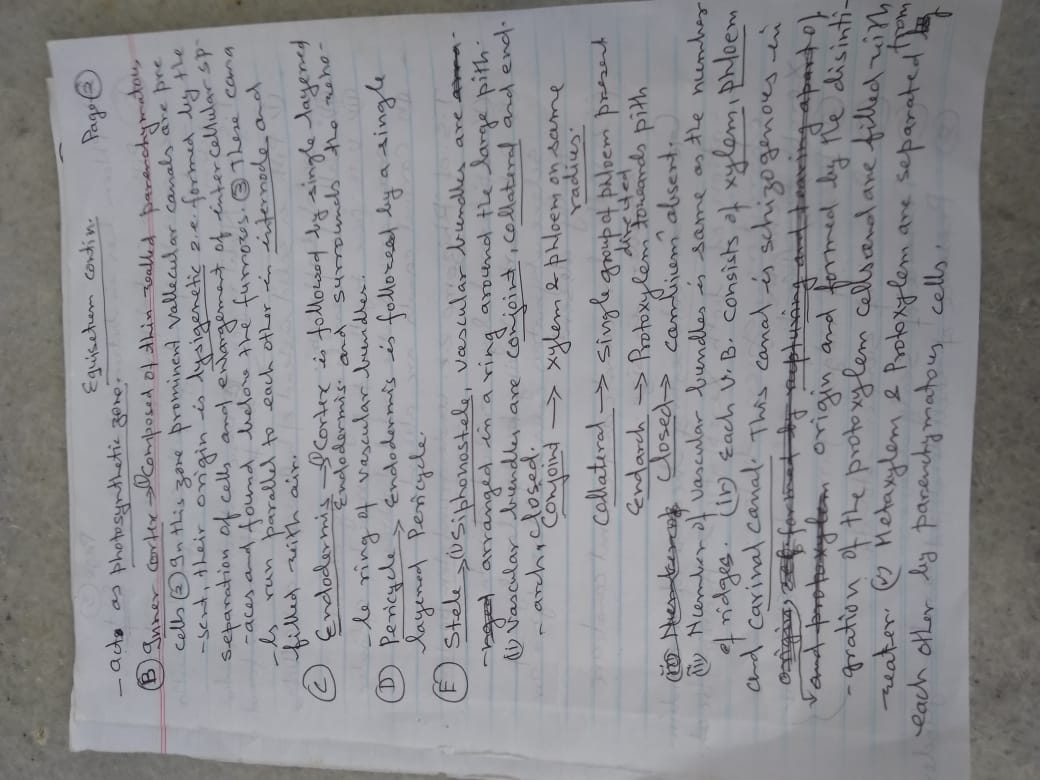 Equisetum contin. Page ②
- acts as photosynthetic zone.
Ⓑ Inner cortex → ① Composed of thin walled parenchymatous
cells ② In this zone prominent vallecular canals are pre
- sent, their origin is lysigenetic i.e. formed by the
separation of cells and enlargement of intercellular sp-
- aces and found below the furrows. ③ These cana
- ls run parallel to each other in internode and
filled with air.
Ⓒ Endodermis → ① Cortex is followed by single layered
Endodermis. and surrounds the
- le ring of vascular bundles.
Ⓓ Pericycle → Endodermis is followed by a single
layered Pericycle.
Ⓔ Stele → (i) Siphonostele, vascular bundles are
arranged in a ring around the large pith.
(ii) Vascular bundles are conjoint, collateral and end-
- arch, closed.
Conjoint → xylem & phloem on same
radius.
Collateral → single group of phloem present
Endarch → Protoxylem directed towards pith
Closed → cambium absent.
(iii) Number of vascular bundles is same as the number
of ridges. (iv) Each V.B. consists of xylem, phloem
and carinal canal. This canal is schizogenous in
origin and formed by
and protoxylem origin and formed by the disinti-
- gration of the protoxylem cells and are filled with
- water. (v) Metaxylem & Protoxylem are separated from
each other by parenchymatous cells.